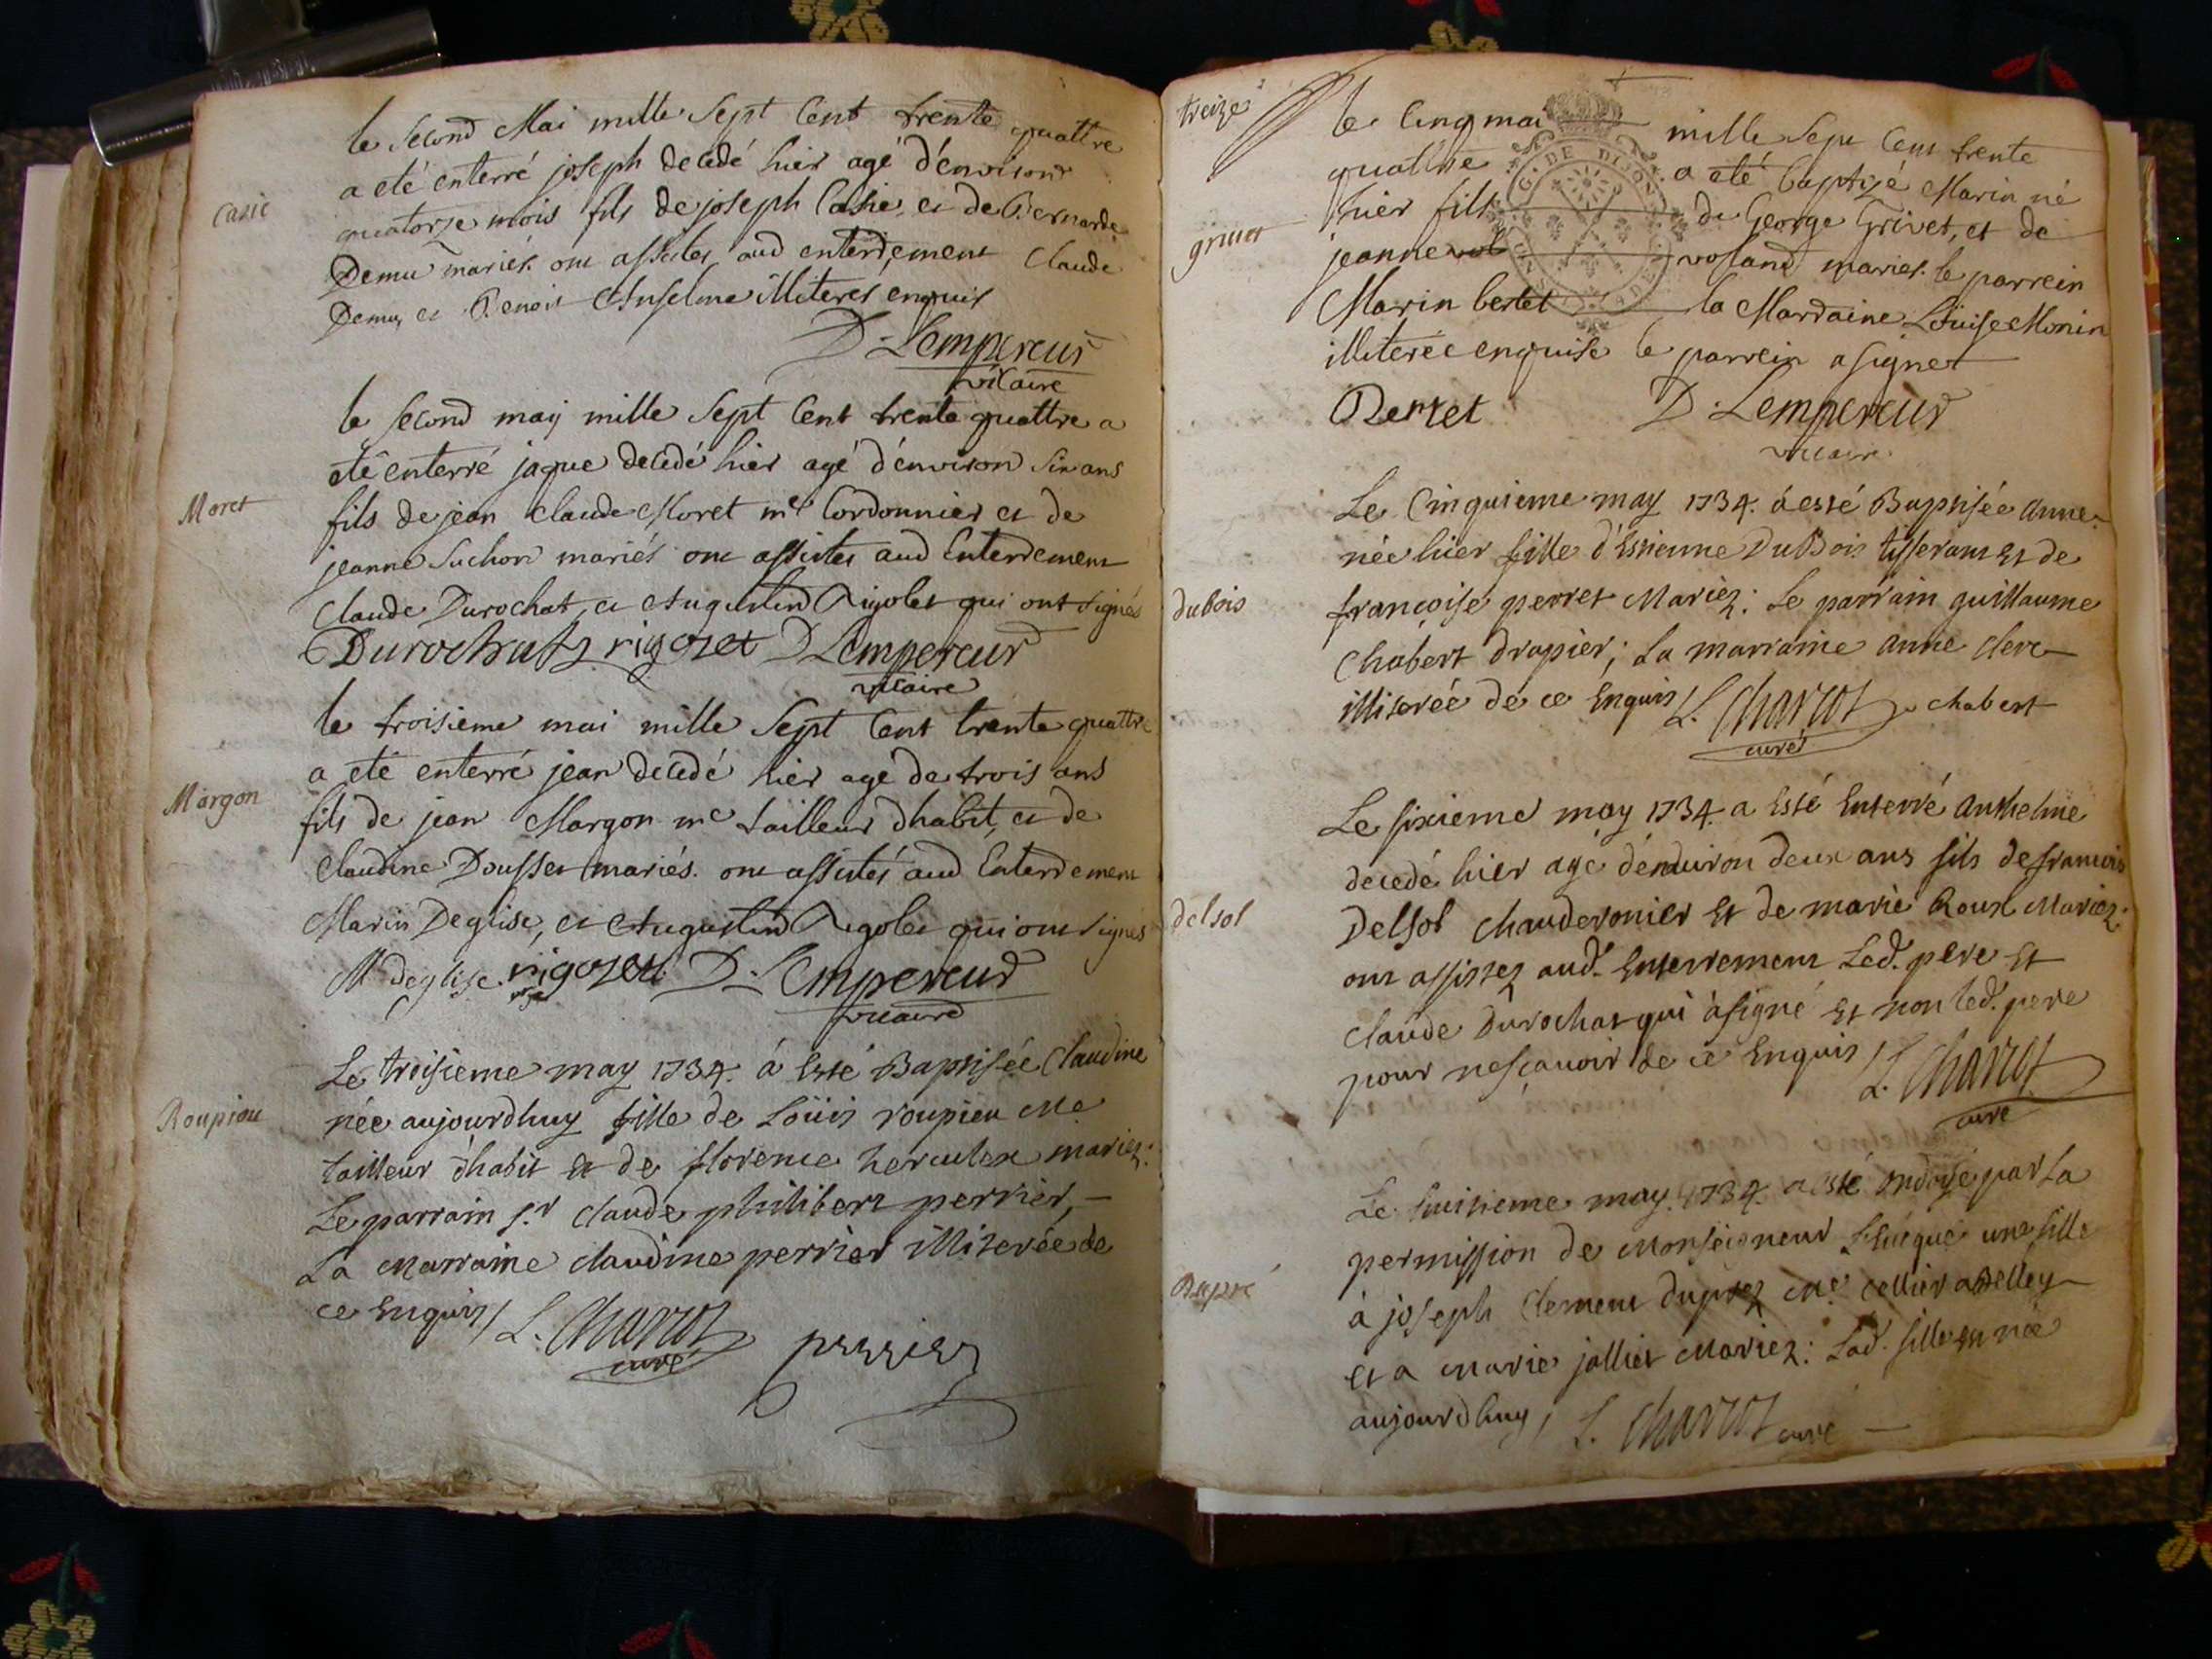 le second Mai mille sept cent trente quattre
a eté enterré joseph decedé hier agé d'environ
Casie
quatorze mois fils de joseph Casie, et de Bernarde
Demu mariés. ont assistes aud enterrement Claude
Demu, et Benoit Anselme illiteres enquis
D. Lempereur
vicaire
le second maÿ mille sept cent trente quattre a
eté enterré jaque decedé hier agé d'environ six ans
Moret
fils de jean claude Moret me Cordonnier et de
jeanne Suchon mariés ont assistes aud Enterrement
Claude Durochat, et Augustin Rigolet qui ont signés
Durochat rigolet D Lempereur
vicaire
le troisieme mai mille sept cent trente quattre
a eté enterré jean decedé hier agé de trois ans
Margon
fils de jean Margon me tailleur dhabit, et de
Claudine Dousset mariés. ont assistés aud Enterrement
Marin Deglise, et Augustin Rigolet qui ont signés
M deglise. rigolet D. Lempereur
vicaire
Le troisieme may 1734. á Esté Baptisée Claudine
Roupiou
née aujourdhuy fille de Loüis roupiou Me
tailleur dhabit et de florence hercules mariez.
Le parrain s.r claude philibert perrier, —
La Marraine claudine perrier illiterée de
ce Enquis / L. Charcot perrier
curé
treize
le cinq mai mille sept cent trente
quattre a eté baptizé Marin né
grivet
hier fils de George Grivet, et de
jeanne vol voland mariés. le parrein
Marin bertet la Mardaine Loüise Monin
illiterée enquise le parrein a signet
Bertet D. Lempereur
vicaire
Le Cinquieme may 1734. á esté Baptisée anne
née hier fille d'Estienne DuBois tisserant Et de
dubois
françoise perret Mariez. Le parrain guillaume
Chabert drapier; La marraine anne clerc
illiterée de ce Enquis / L. Charcot chabert
curé
Le sixieme may 1734. a Esté Enterré anthelme
decedé hier agé denuiron deux ans fils de francois
delsol
Delsol chauderonier Et de marie Roux Mariez.
ont assistez aud. Enterrement Led. pere Et
claude Durochat qui á signé Et non led. pere
pour nesçauoir de ce Enquis / L. Charcot
curé
Le huitieme may. 1734. a esté ondoyé par La
permission de Monseigneur L'Euéque une fille
Dupré
à joseph Clement duprez Me cellier a Belley
et a Marie jolliet Mariez. Lad. fille est née
aujourdhuy / L. Charcot curé